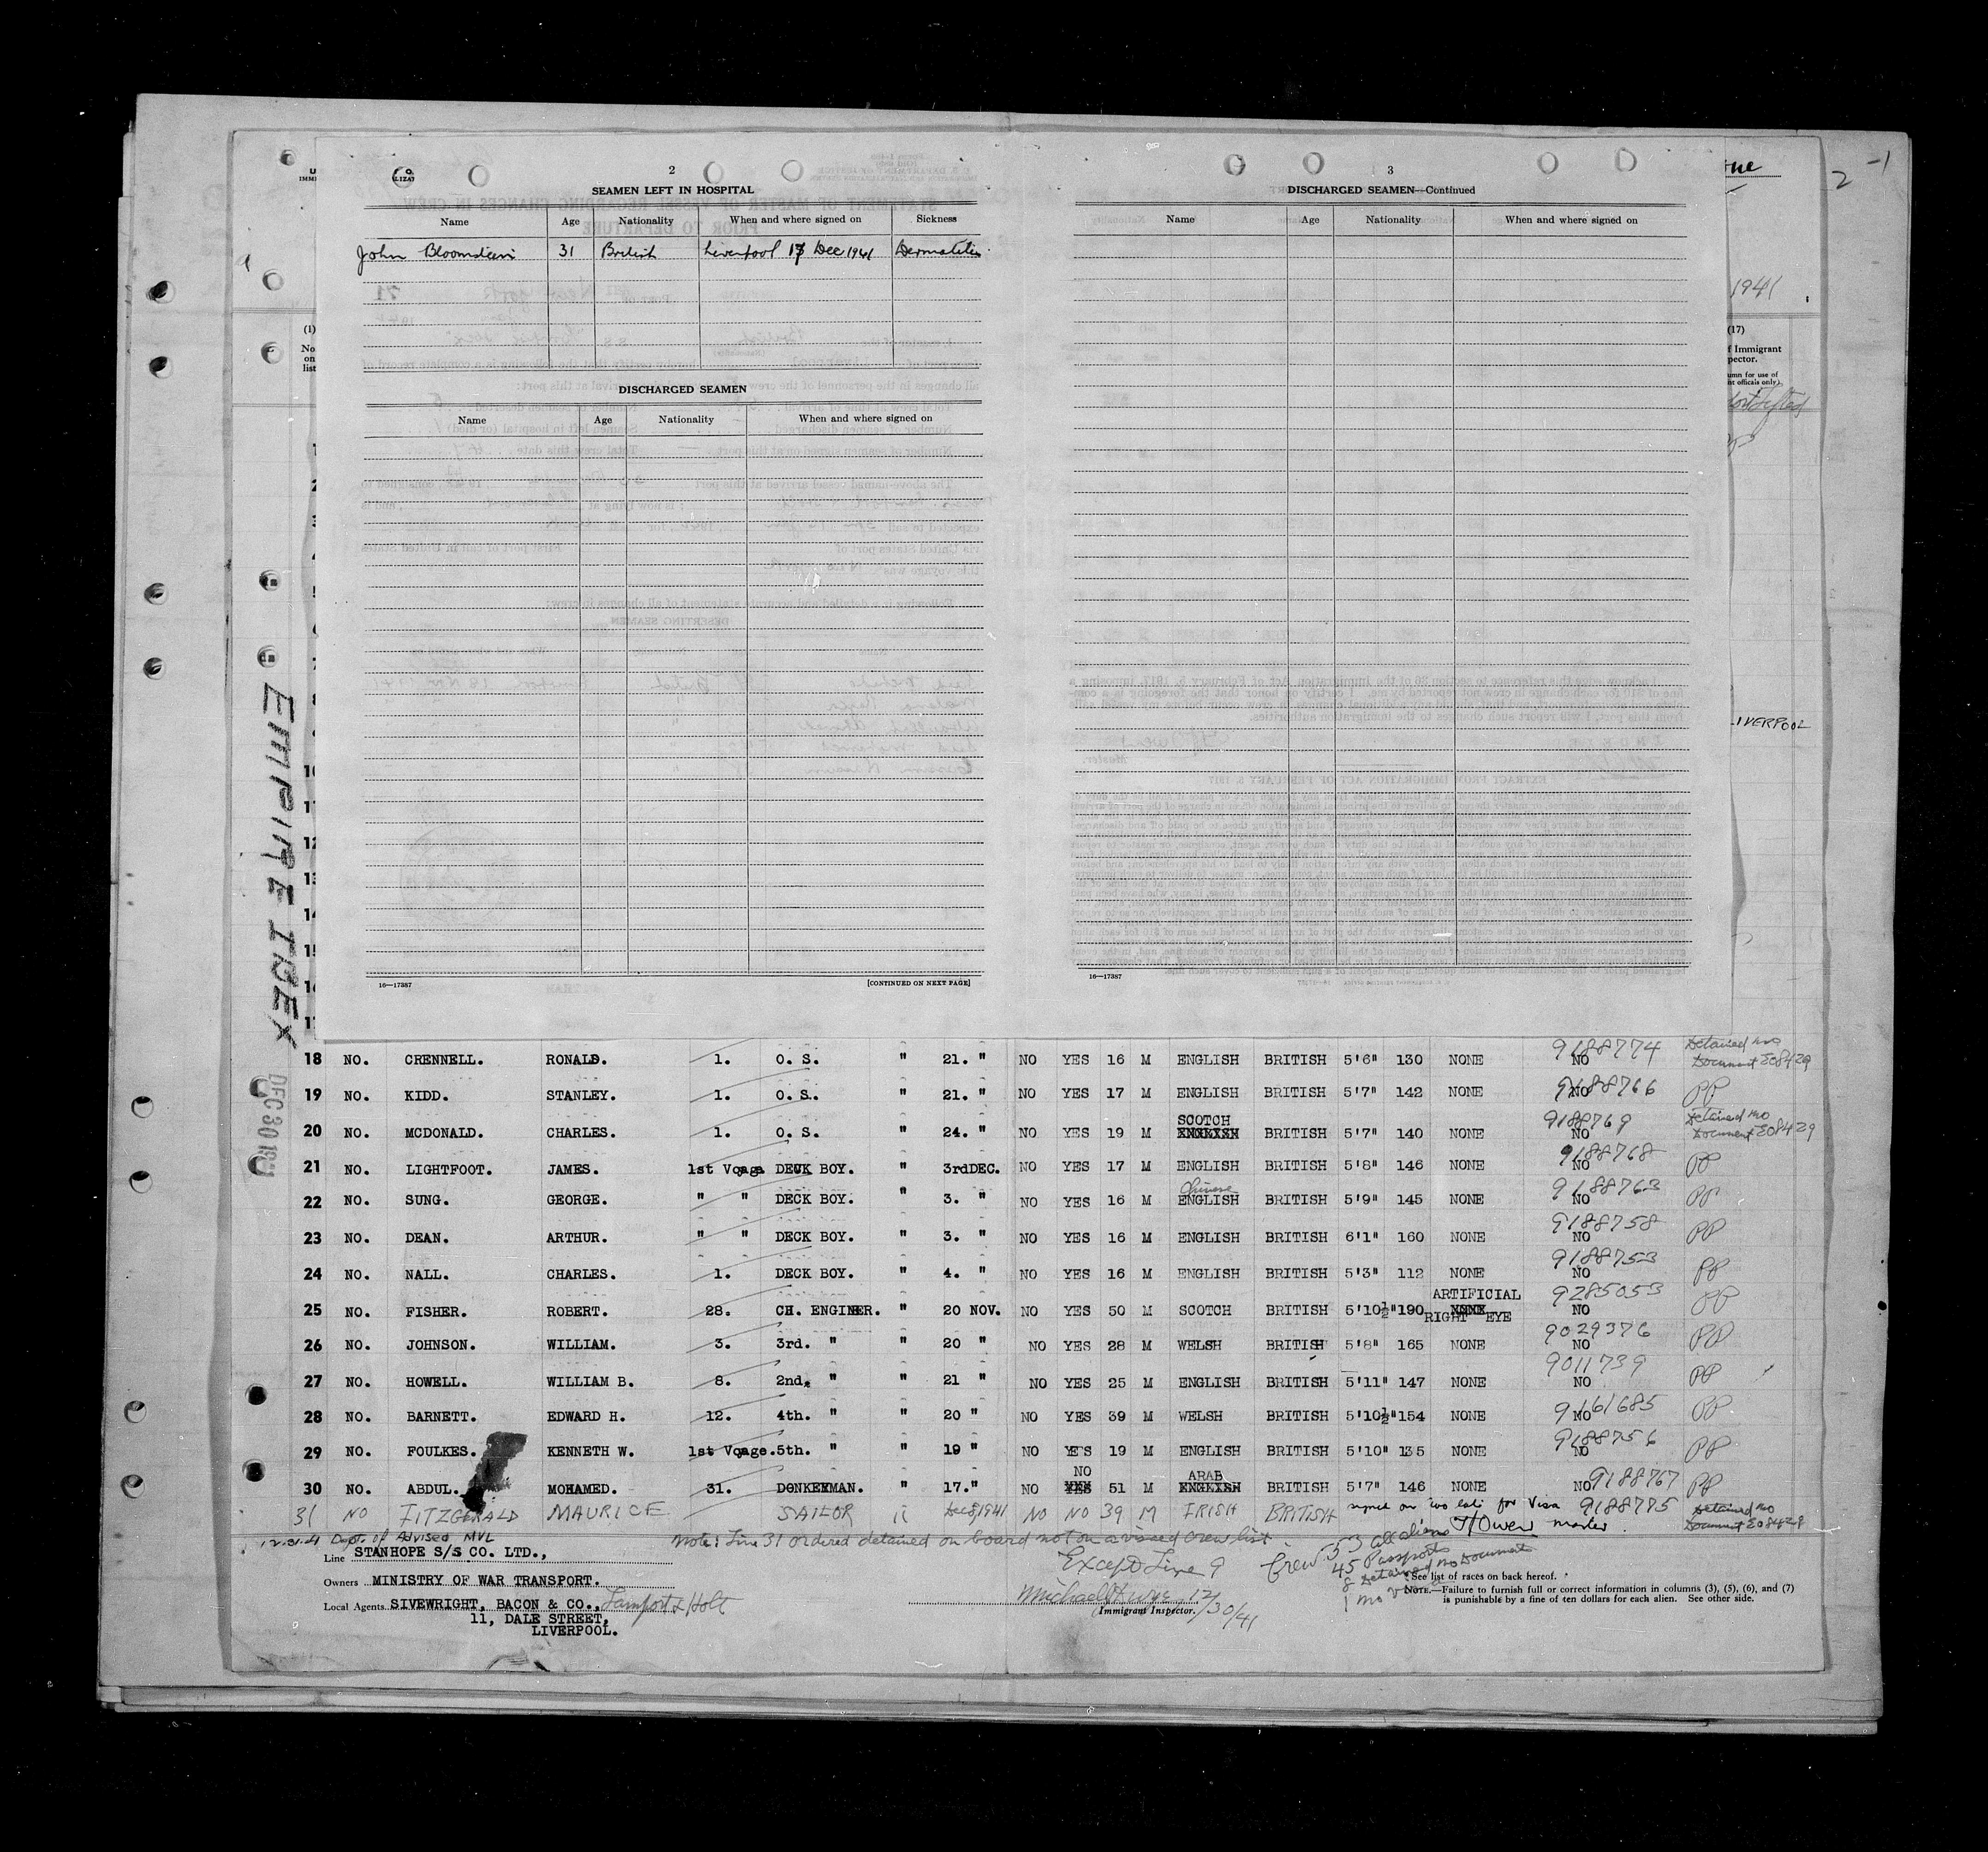 2
SEAMEN LEFT IN HOSPITAL
Name Age Nationality When and where signed on Sickness
John Bloomstein 31 British Liverpool 17 Dec 1941 Dermatitis
DISCHARGED SEAMEN
Name Age Nationality When and where signed on
16—17387 [CONTINUED ON NEXT PAGE]
3
DISCHARGED SEAMEN—Continued
Name Age Nationality When and where signed on
16—17387
2 -1
1941
(1)
No
on
list
(17)
f Immigrant
pector.
umn for use of
nt officials only).
LIVERPOOL
EMPIRE IBEX
DEC 30 1941
18 NO. CRENNELL. RONALD. 1. O. S. " 21. " NO YES 16 M ENGLISH BRITISH 5'6" 130 NONE NO 9188774 Detained no Document E08429
19 NO. KIDD. STANLEY. 1. O. S. " 21. " NO YES 17 M ENGLISH BRITISH 5'7" 142 NONE NO 9188766 PP
20 NO. MCDONALD. CHARLES. 1. O. S. " 24. " NO YES 19 M SCOTCH ENGLISH BRITISH 5'7" 140 NONE NO 9188769 Detained no Document E08429
21 NO. LIGHTFOOT. JAMES. 1st Voage DECK BOY. " 3rdDEC. NO YES 17 M ENGLISH BRITISH 5'8" 146 NONE NO 9188768 PP
22 NO. SUNG. GEORGE. " " DECK BOY. " 3. " NO YES 16 M Chinese ENGLISH BRITISH 5'9" 145 NONE NO 9188763 PP
23 NO. DEAN. ARTHUR. " " DECK BOY. " 3. " NO YES 16 M ENGLISH BRITISH 6'1" 160 NONE NO 9188758 PP
24 NO. NALL. CHARLES. 1. DECK BOY. " 4. " NO YES 16 M ENGLISH BRITISH 5'3" 112 NONE NO 9188753 PP
25 NO. FISHER. ROBERT. 28. CH. ENGINER. " 20 NOV. NO YES 50 M SCOTCH BRITISH 5'10½"190 ARTIFICIAL RIGHT EYE NO 9285053 PP
26 NO. JOHNSON. WILLIAM. 3. 3rd. " " 20 " NO YES 28 M WELSH BRITISH 5'8" 165 NONE NO 9029376 PP
27 NO. HOWELL. WILLIAM B. 8. 2nd. " " 21 " NO YES 25 M ENGLISH BRITISH 5'11" 147 NONE NO 9011739 PP
28 NO. BARNETT. EDWARD H. 12. 4th. " " 20 " NO YES 39 M WELSH BRITISH 5'10½"154 NONE NO 9161685 PP
29 NO. FOULKES. KENNETH W. 1st Voage. 5th. " " 19 " NO YES 19 M ENGLISH BRITISH 5'10" 135 NONE NO 9188756 PP
30 NO. ABDUL. MOHAMED. 31. DONKEYMAN. " 17." NO NO YES 51 M ARAB ENGLISH BRITISH 5'7" 146 NONE NO 9188767 PP
31 NO FITZGERALD MAURICE SAILOR " Dec 8, 1941 NO NO 39 M IRISH BRITISH signed on too late for Visa 9188775 Detained no Document E08429
TOwen master.
12.31.41 Dept. of Advised MVL
Note: Line 31 ordered detained on board not on a visaed crew list.
Except Line 9
Crew 53 all aliens
45 Passports
8 Detained no Documents
1 no visa
Line STANHOPE S/S CO. LTD.,
Owners MINISTRY OF WAR TRANSPORT.
Local Agents SIVEWRIGHT, BACON & CO., Lamport & Holt
11, DALE STREET,
LIVERPOOL.
12/30/41
Immigrant Inspector.
See list of races on back hereof.
NOTE.—Failure to furnish full or correct information in columns (3), (5), (6), and (7)
is punishable by a fine of ten dollars for each alien. See other side.